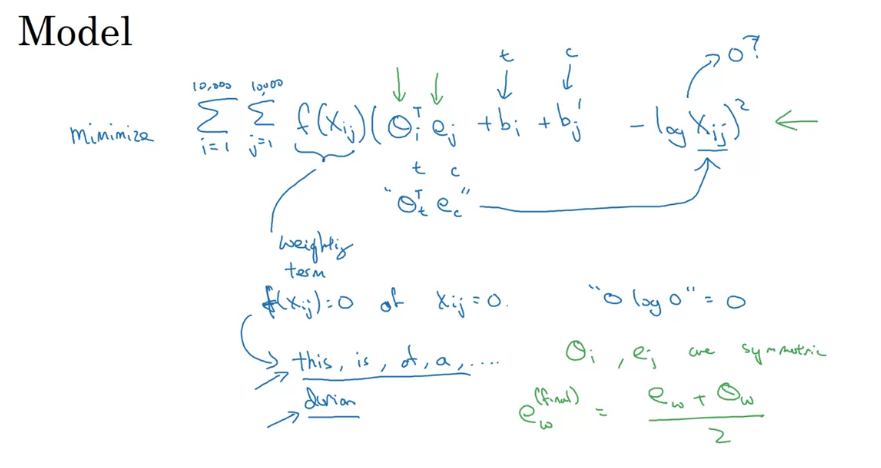 Model
t c 0?
minimize Σ_{i=1}^{10,000} Σ_{j=1}^{10,000} f(X_ij) (θ_i^T e_j + b_i + b_j' - log X_ij)^2
t c
"θ_t^T e_c"
weighting
term
f(X_ij)=0 if X_ij=0. "0 log 0" = 0
this, is, of, a, ....
durian
θ_i, e_j are symmetric
e_w^(final) = (e_w + θ_w) / 2